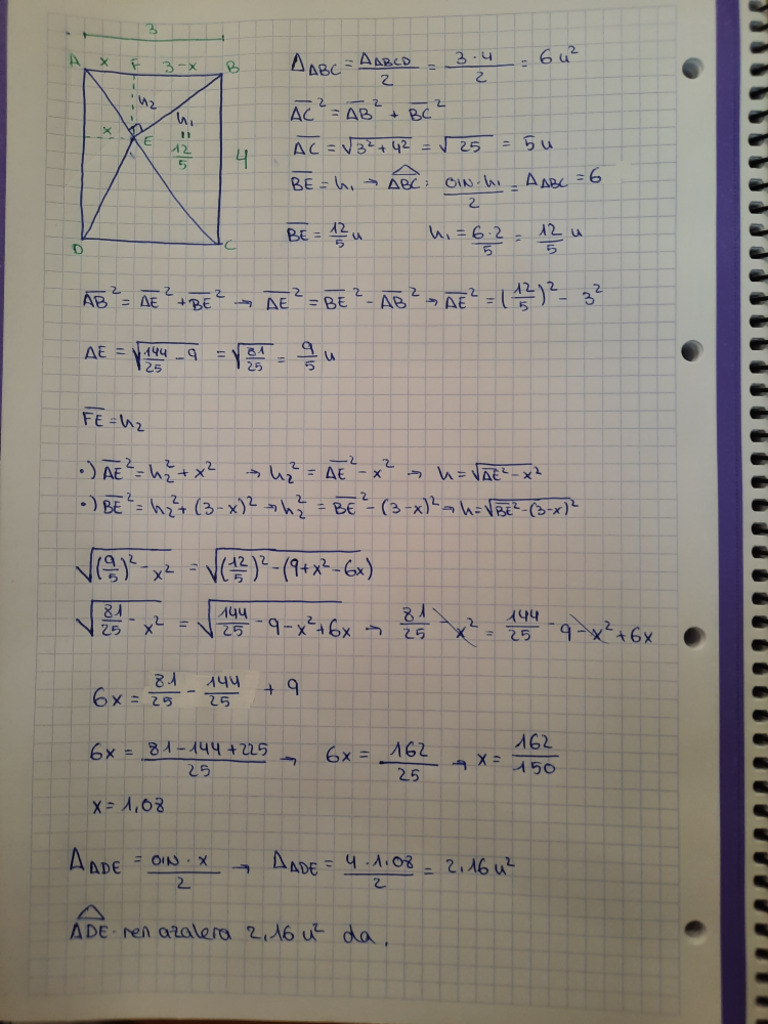 3
A x F 3-x B
h₂ h₁
x E = 12/5 4
D C
A_ABC = A_ABCD/2 = 3·4/2 = 6u²
AC² = AB² + BC²
AC = √(3²+4²) = √25 = 5u
BE = h₁ → ABC: OIN·h₁/2 = A_ABC = 6
BE = 12/5 u h₁ = 6·2/5 = 12/5 u
AB² = AE² + BE² → AE² = BE² - AB² → AE² = (12/5)² - 3²
AE = √(144/25 - 9) = √(81/25) = 9/5 u
FE = h₂
·) AE² = h₂² + x² → h₂² = AE² - x² → h = √(AE² - x²)
·) BE² = h₂² + (3-x)² → h₂² = BE² - (3-x)² → h = √(BE² - (3-x)²)
√((9/5)² - x²) = √((12/5)² - (9+x²-6x))
√(81/25 - x²) = √(144/25 - 9 - x² + 6x) → 81/25 - x² = 144/25 - 9 - x² + 6x
6x = 81/25 - 144/25 + 9
6x = (81-144+225)/25 → 6x = 162/25 → x = 162/150
x = 1,08
A_ADE = OIN·x/2 → A_ADE = 4·1,08/2 = 2,16u²
ADE-ren azalera 2,16u² da.